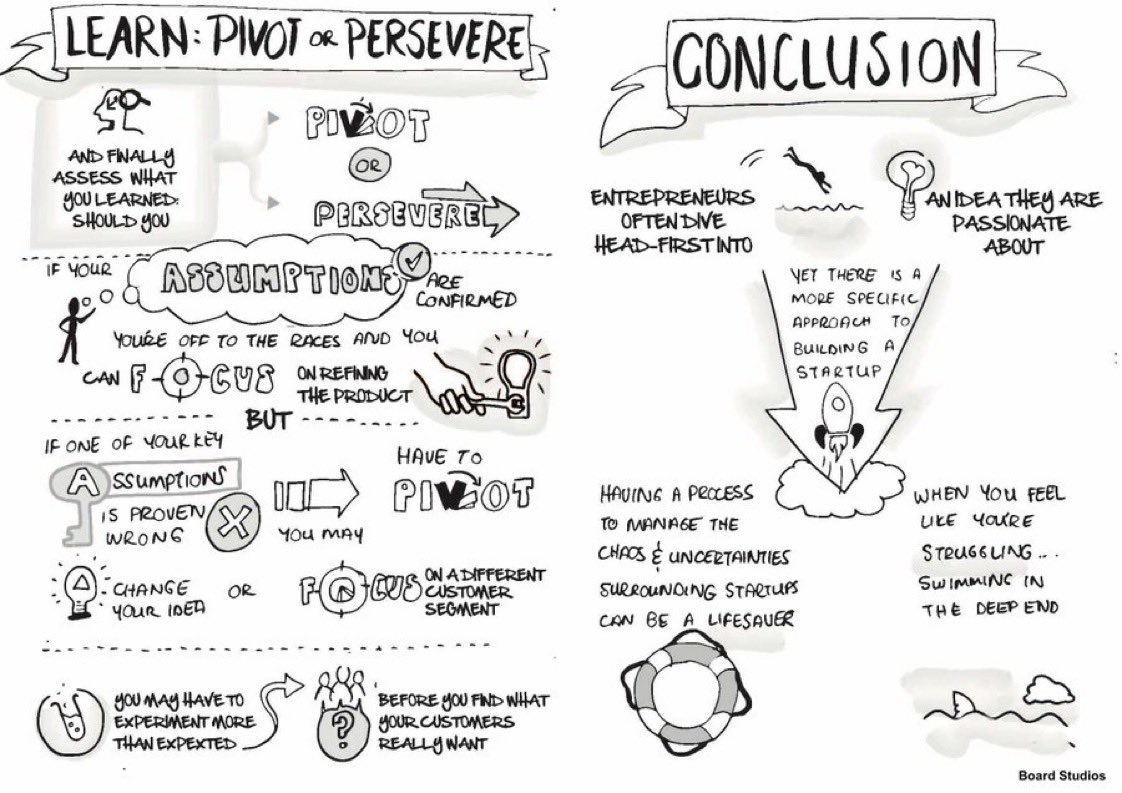 LEARN: PIVOT OR PERSEVERE
AND FINALLY
ASSESS WHAT
YOU LEARNED:
SHOULD YOU
PIVOT
OR
PERSEVERE
IF YOUR ASSUMPTIONS ARE
CONFIRMED
YOU'RE OFF TO THE RACES AND YOU
CAN FOCUS ON REFINING
THE PRODUCT
BUT
IF ONE OF YOUR KEY
ASSUMPTIONS
IS PROVEN
WRONG
YOU MAY
HAVE TO
PIVOT
CHANGE
YOUR IDEA
OR
FOCUS
ON A DIFFERENT
CUSTOMER
SEGMENT
YOU MAY HAVE TO
EXPERIMENT MORE
THAN EXPEXTED
?
BEFORE YOU FIND WHAT
YOUR CUSTOMERS
REALLY WANT
CONCLUSION
ENTREPRENEURS
OFTEN DIVE
HEAD-FIRST INTO
AN IDEA THEY ARE
PASSIONATE
ABOUT
YET THERE IS A
MORE SPECIFIC
APPROACH TO
BUILDING A
STARTUP
HAVING A PROCESS
TO MANAGE THE
CHAOS & UNCERTAINTIES
SURROUNDING STARTUPS
CAN BE A LIFESAVER
WHEN YOU FEEL
LIKE YOU'RE
STRUGGLING...
SWIMMING IN
THE DEEP END
Board Studios